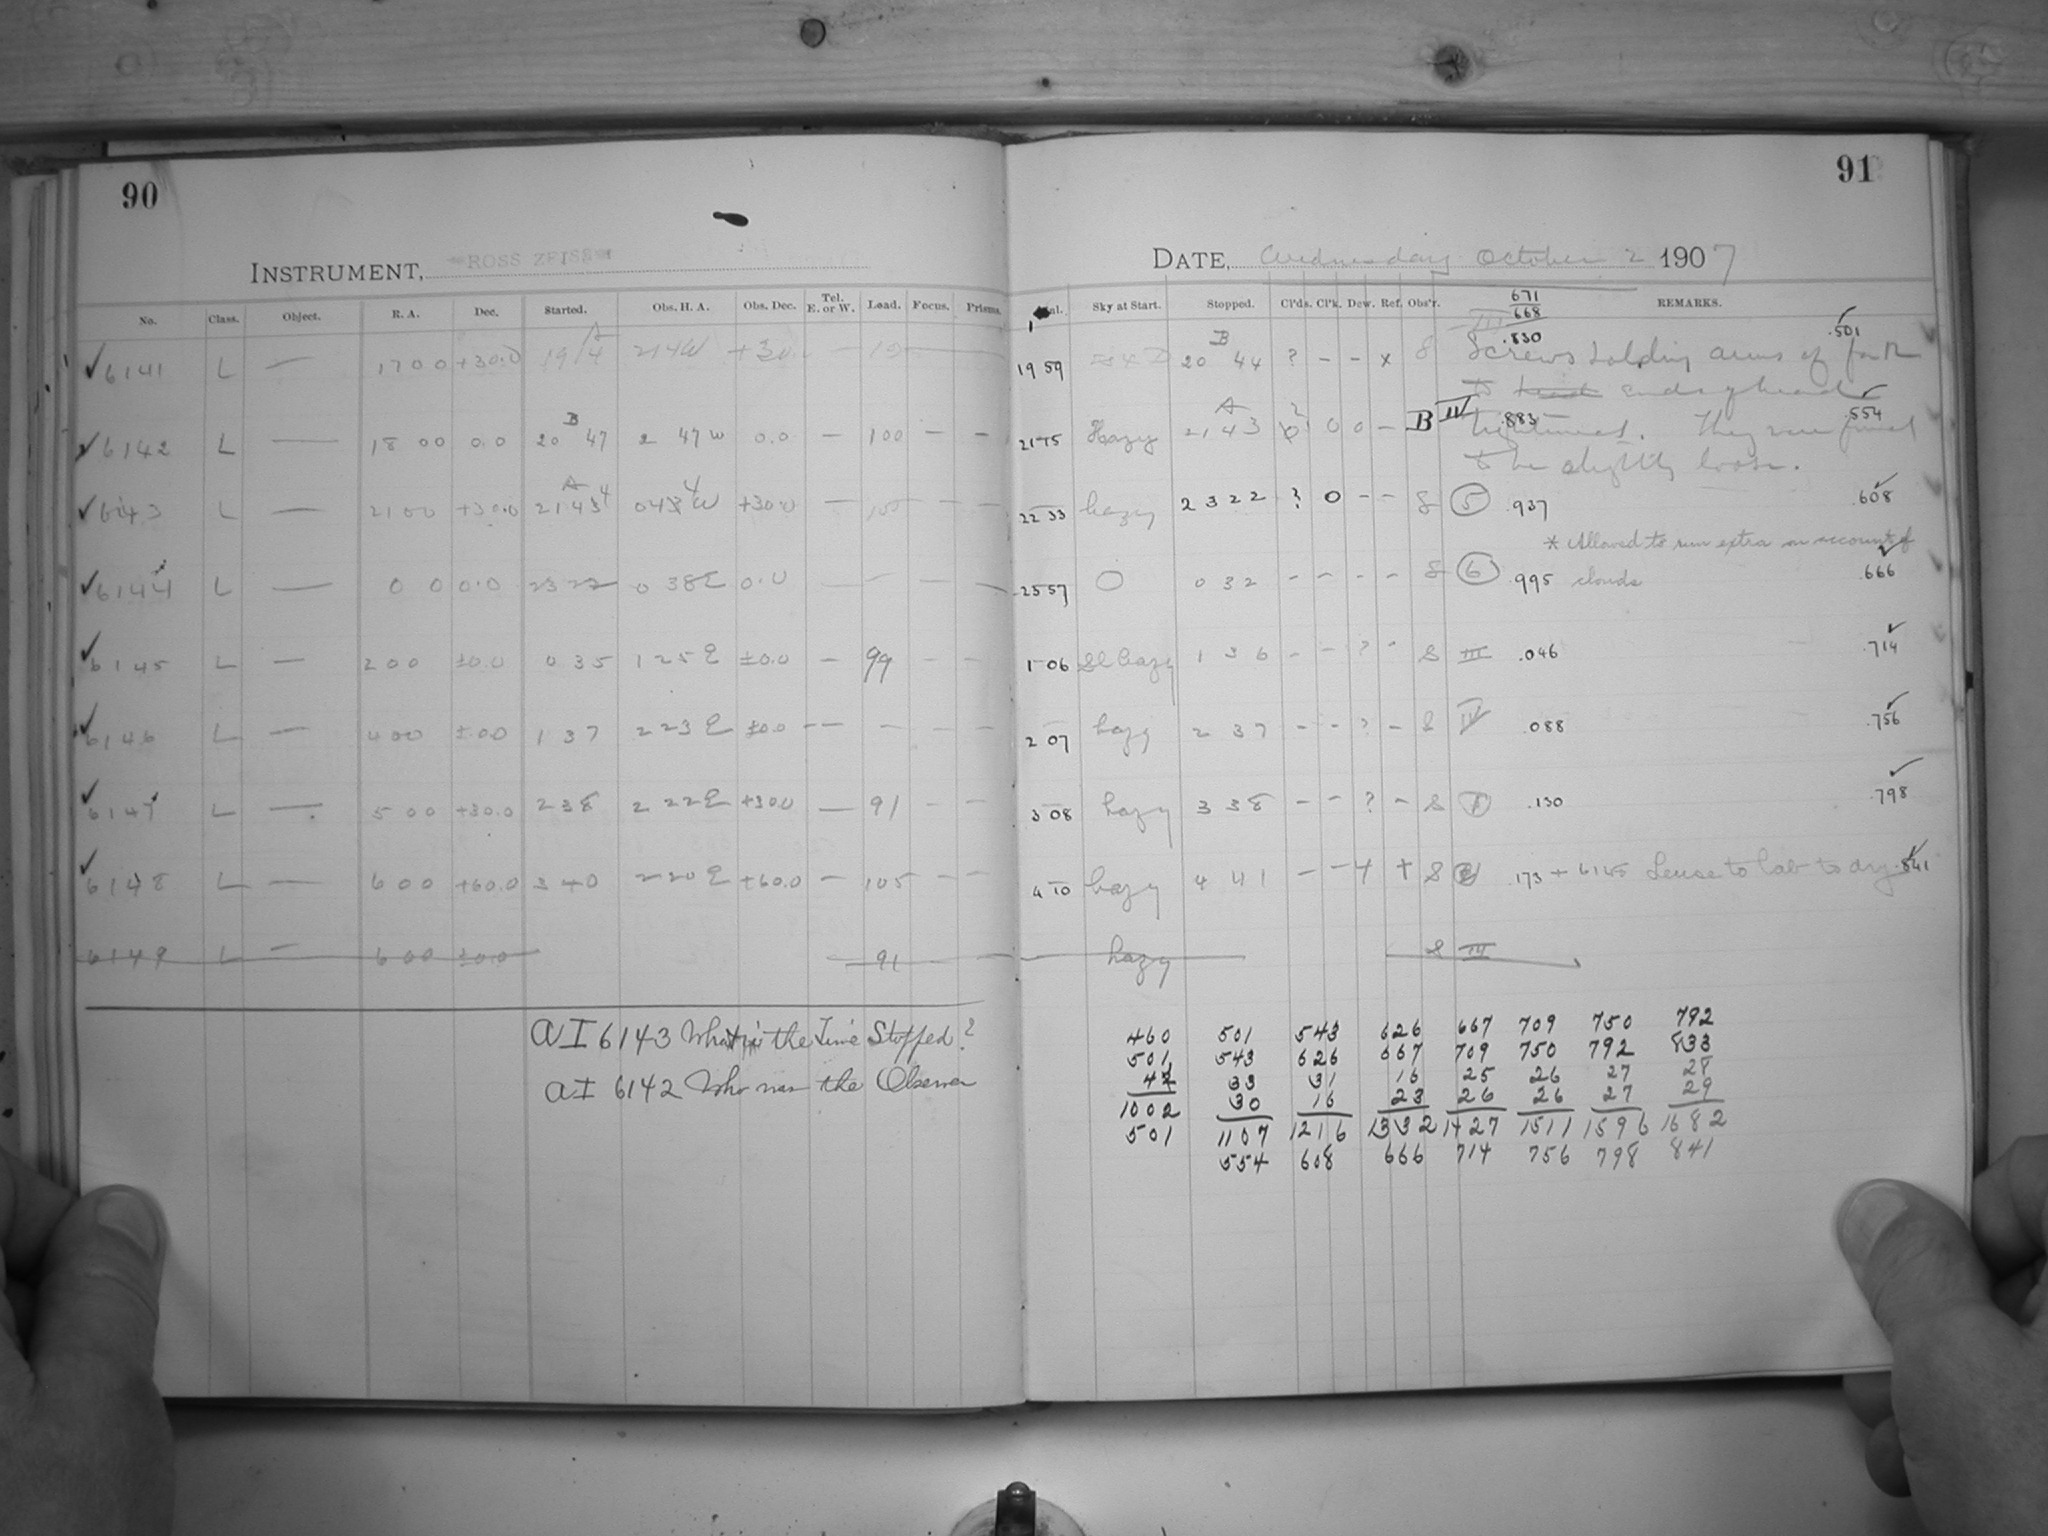 90
INSTRUMENT, ROSS ZEISS
No. Class. Object. R. A. Dec. Started. Obs. H. A. Obs. Dec. Tel. E. or W. Load. Focus. Prisms.
✓ 6141 L — 17 00 +30.0 19 14 2 14 W +30. —
✓ 6142 L — 18 00 0.0 B 20 47 2 47 W 0.0 — 100 — —
✓ 6143 L — 21 00 +30.0 A 21 43 4 0 43 4 W +30.0 — 100 — —
✓ 6144 L — 0 0 0.0 23 22 0 38 E 0.0 — — — —
✓ 6145 L — 2 00 ±0.0 0 35 1 25 E ±0.0 — 99 — —
✓ 6146 L — 4 00 ±00 1 37 2 23 E ±0.0 — — — —
✓ 6147 L — 5 00 +30.0 2 38 2 22 E +30.0 — 91 — —
✓ 6148 L — 6 00 +60.0 3 40 2 20 E +60.0 — 105 — —
6149 L — 6 00 ±0.0 91 — —
AI 6143 What is the Time Stopped?
AI 6142 Who was the Observer
91
DATE, Wednesday October 2 1907
Sky at Start. Stopped. Cl'ds. Cl'k. Dew. Ref. Obs'r. 671 REMARKS.
668
19 59 B 20 44 ? — — x S III .830 .501 ✓
Screws holding arms of fork
to ends of head
21 15 Hazy A 21 43 ? 0 0 — B IV .883 tightened. They were found .554 ✓
to be slightly loose.
22 33 hazy 23 22 ? 0 — — S 5 .937 .608 ✓
* Allowed to run extra on account of
23 57 0 0 32 — — — — S 6 .995 clouds .666 ✓
1 06 Sl hazy 1 36 — — ? — S III .046 .714 ✓
2 07 hazy 2 37 — — ? — S IV .088 .756 ✓
3 08 hazy 3 38 — — ? — S .130 .798 ✓
4 10 hazy 4 41 — — + + S .173 + 6145 Lense to lab to dry .841 ✓
hazy S III
460 501 543 626 667 709 750 792
501 543 626 667 709 750 792 833
42 33 31 16 25 26 27 28
1002 30 16 23 26 26 27 29
501 1107 1216 1332 1427 1511 1596 1682
554 608 666 714 756 798 841